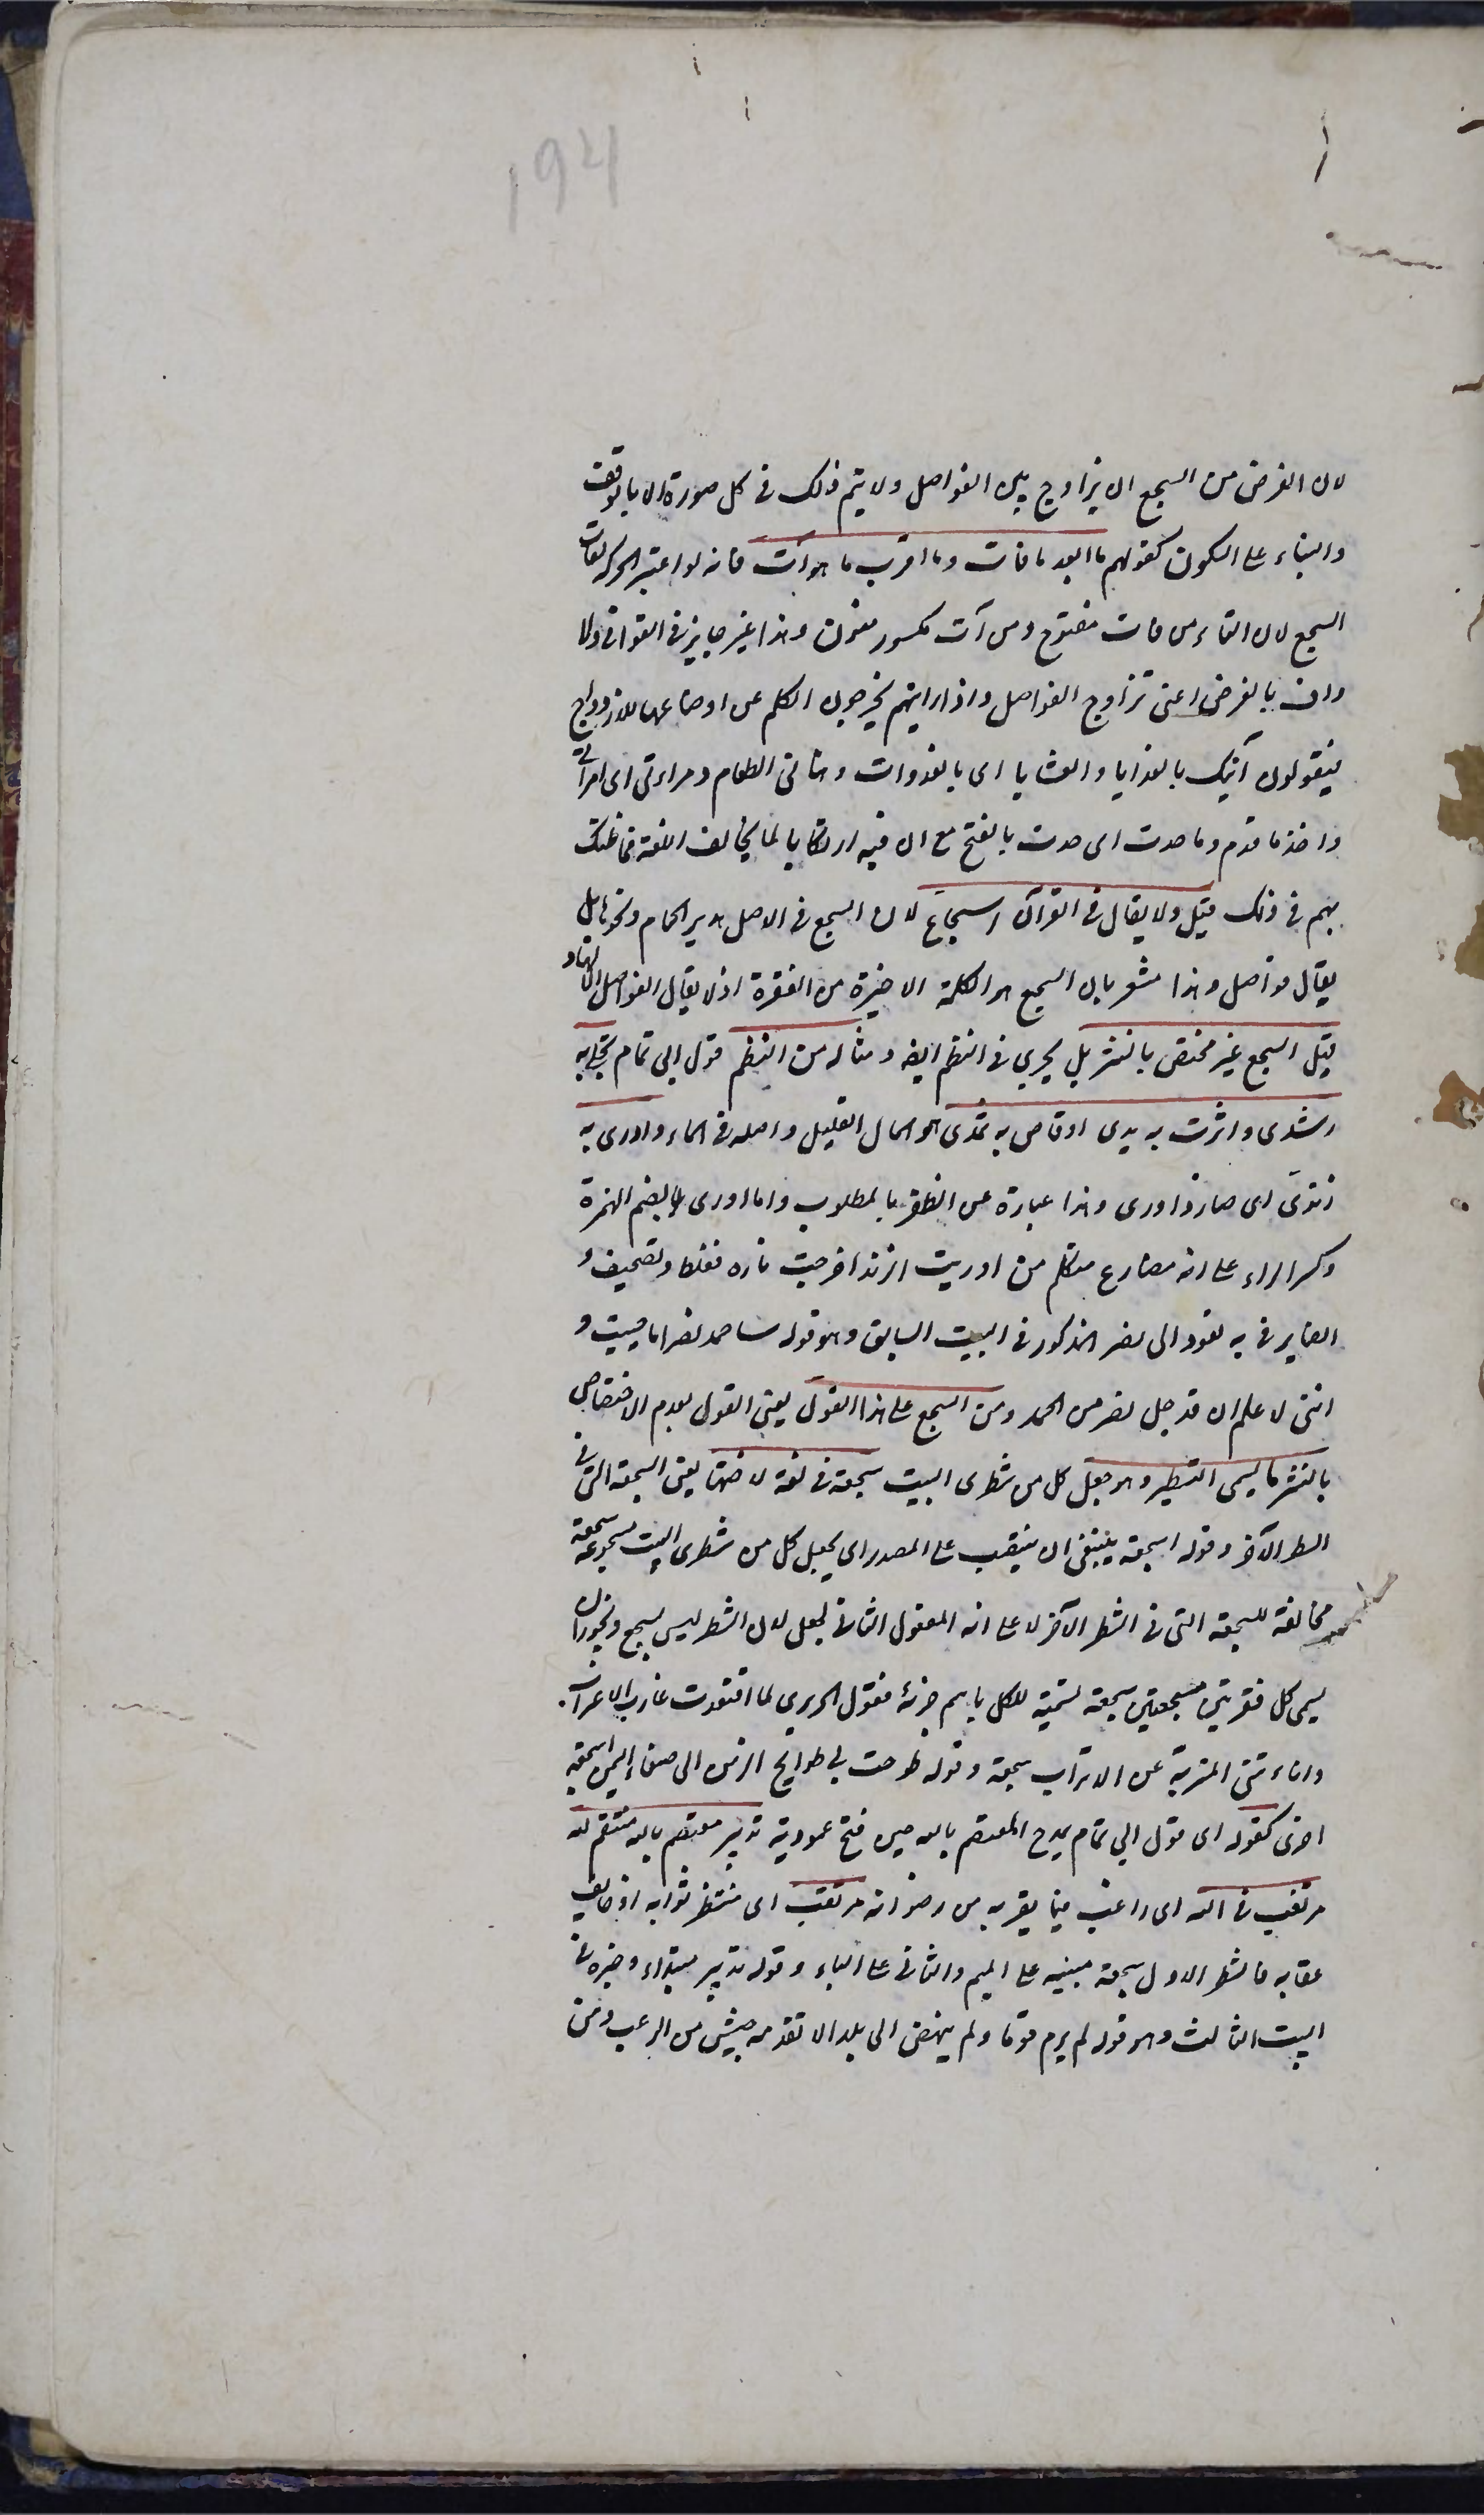 194
لان الغرض من السجع ان يزاوج بين الفواصل ولا يتم ذلك في كل صورة الا بالوقف
والبناء على السكون كقولهم ما ابعد ما فات وما اقرب ما هو آت فانه لو اعتبر الحركة لفات
السجع لان التاء من فات مفتوح ومن آت مكسور منون وهذا غير جايز في القوافي ولا
واف بالغرض اعني تزاوج الفواصل واذا رايتهم يخرجون الكلم عن اوضاعها للازدواج
فيقولون آتيك بالغدايا والعشايا اى بالغدوات وهنأنى الطعام ومرأنى اى امرأنى
واخذ ما قدم وما حدث اى حدث بالفتح مع ان فيه ارتكابا لما يخالف اللغة فما ظنك
بهم في ذلك قيل ولا يقال في القرآن اسجاع لان السجع في الاصل هدير الحمام ونحوها بل
يقال فواصل وهذا مشعر بان السجع هو الكلمة الاخيرة من الفقرة اذ لا يقال الفواصل الا لها و
قيل السجع غير مختص بالنثر بل يجري في النظم ايضا ومثاله من النظم قول ابي تمام تجلى به
رشدى واثرت به يدى وفاض به ثمدى هو المال القليل واصله في الماء واورى به
زندى اى صار ذا ورى وهذا عبارة عن الظفر بالمطلوب واما اورى بضم الهمزة
وكسر الراء على انه مضارع متكلم من اوريت الزند اخرجت ناره فغلط وتصحيف و
الضاير في به لعود الى نصر المذكور في البيت السابق وهو قوله ساحمد نصرا ما حييت و
انني لاعلم ان قد جل نصر من الحمد ومن السجع على هذا القول يعني القول بعدم الاختصاص
بالنثر ما يسمى التشطير وهو جعل كل من شطرى البيت سجعة مخالفة لاختها يعني السجعة التي في
الشطر الآخر وقوله سجعة ينبغي ان ينتصب على المصدر اى يجعل كل من شطرى البيت مسجوعة سجعة
مخالفة للسجعة التي في الشطر الآخر لا على انه المفعول الثاني لجعل لان الشطر ليس بسجع ويجوز ان
يسمى كل فقرتين مسجعتين سجعة تسمية للكل باسم جزئه فقول الحريري لما اقتعدت غارب الاغتراب
وانأتني المتربة عن الاتراب سجعة وقوله طوحت بي طوايح الزمن الى صنعاء اليمن سجعة
اخرى كقوله اى قول ابي تمام يمدح المعتصم بالله حين فتح عمورية تدبير معتصم بالله منتقم لله
مرتغب في الله اى راغب فيما يقربه من رضوانه مرتقب اى منتظر ثوابه او خايف
عقابه فالشطر الاول سجعة مبنية على الميم والثاني على الباء وقوله تدبير مبتداء وخبره في
البيت الثالث وهو قوله لم يرم قوما ولم ينهض الى بلد الا تقدمه جيش من الرعب ومن